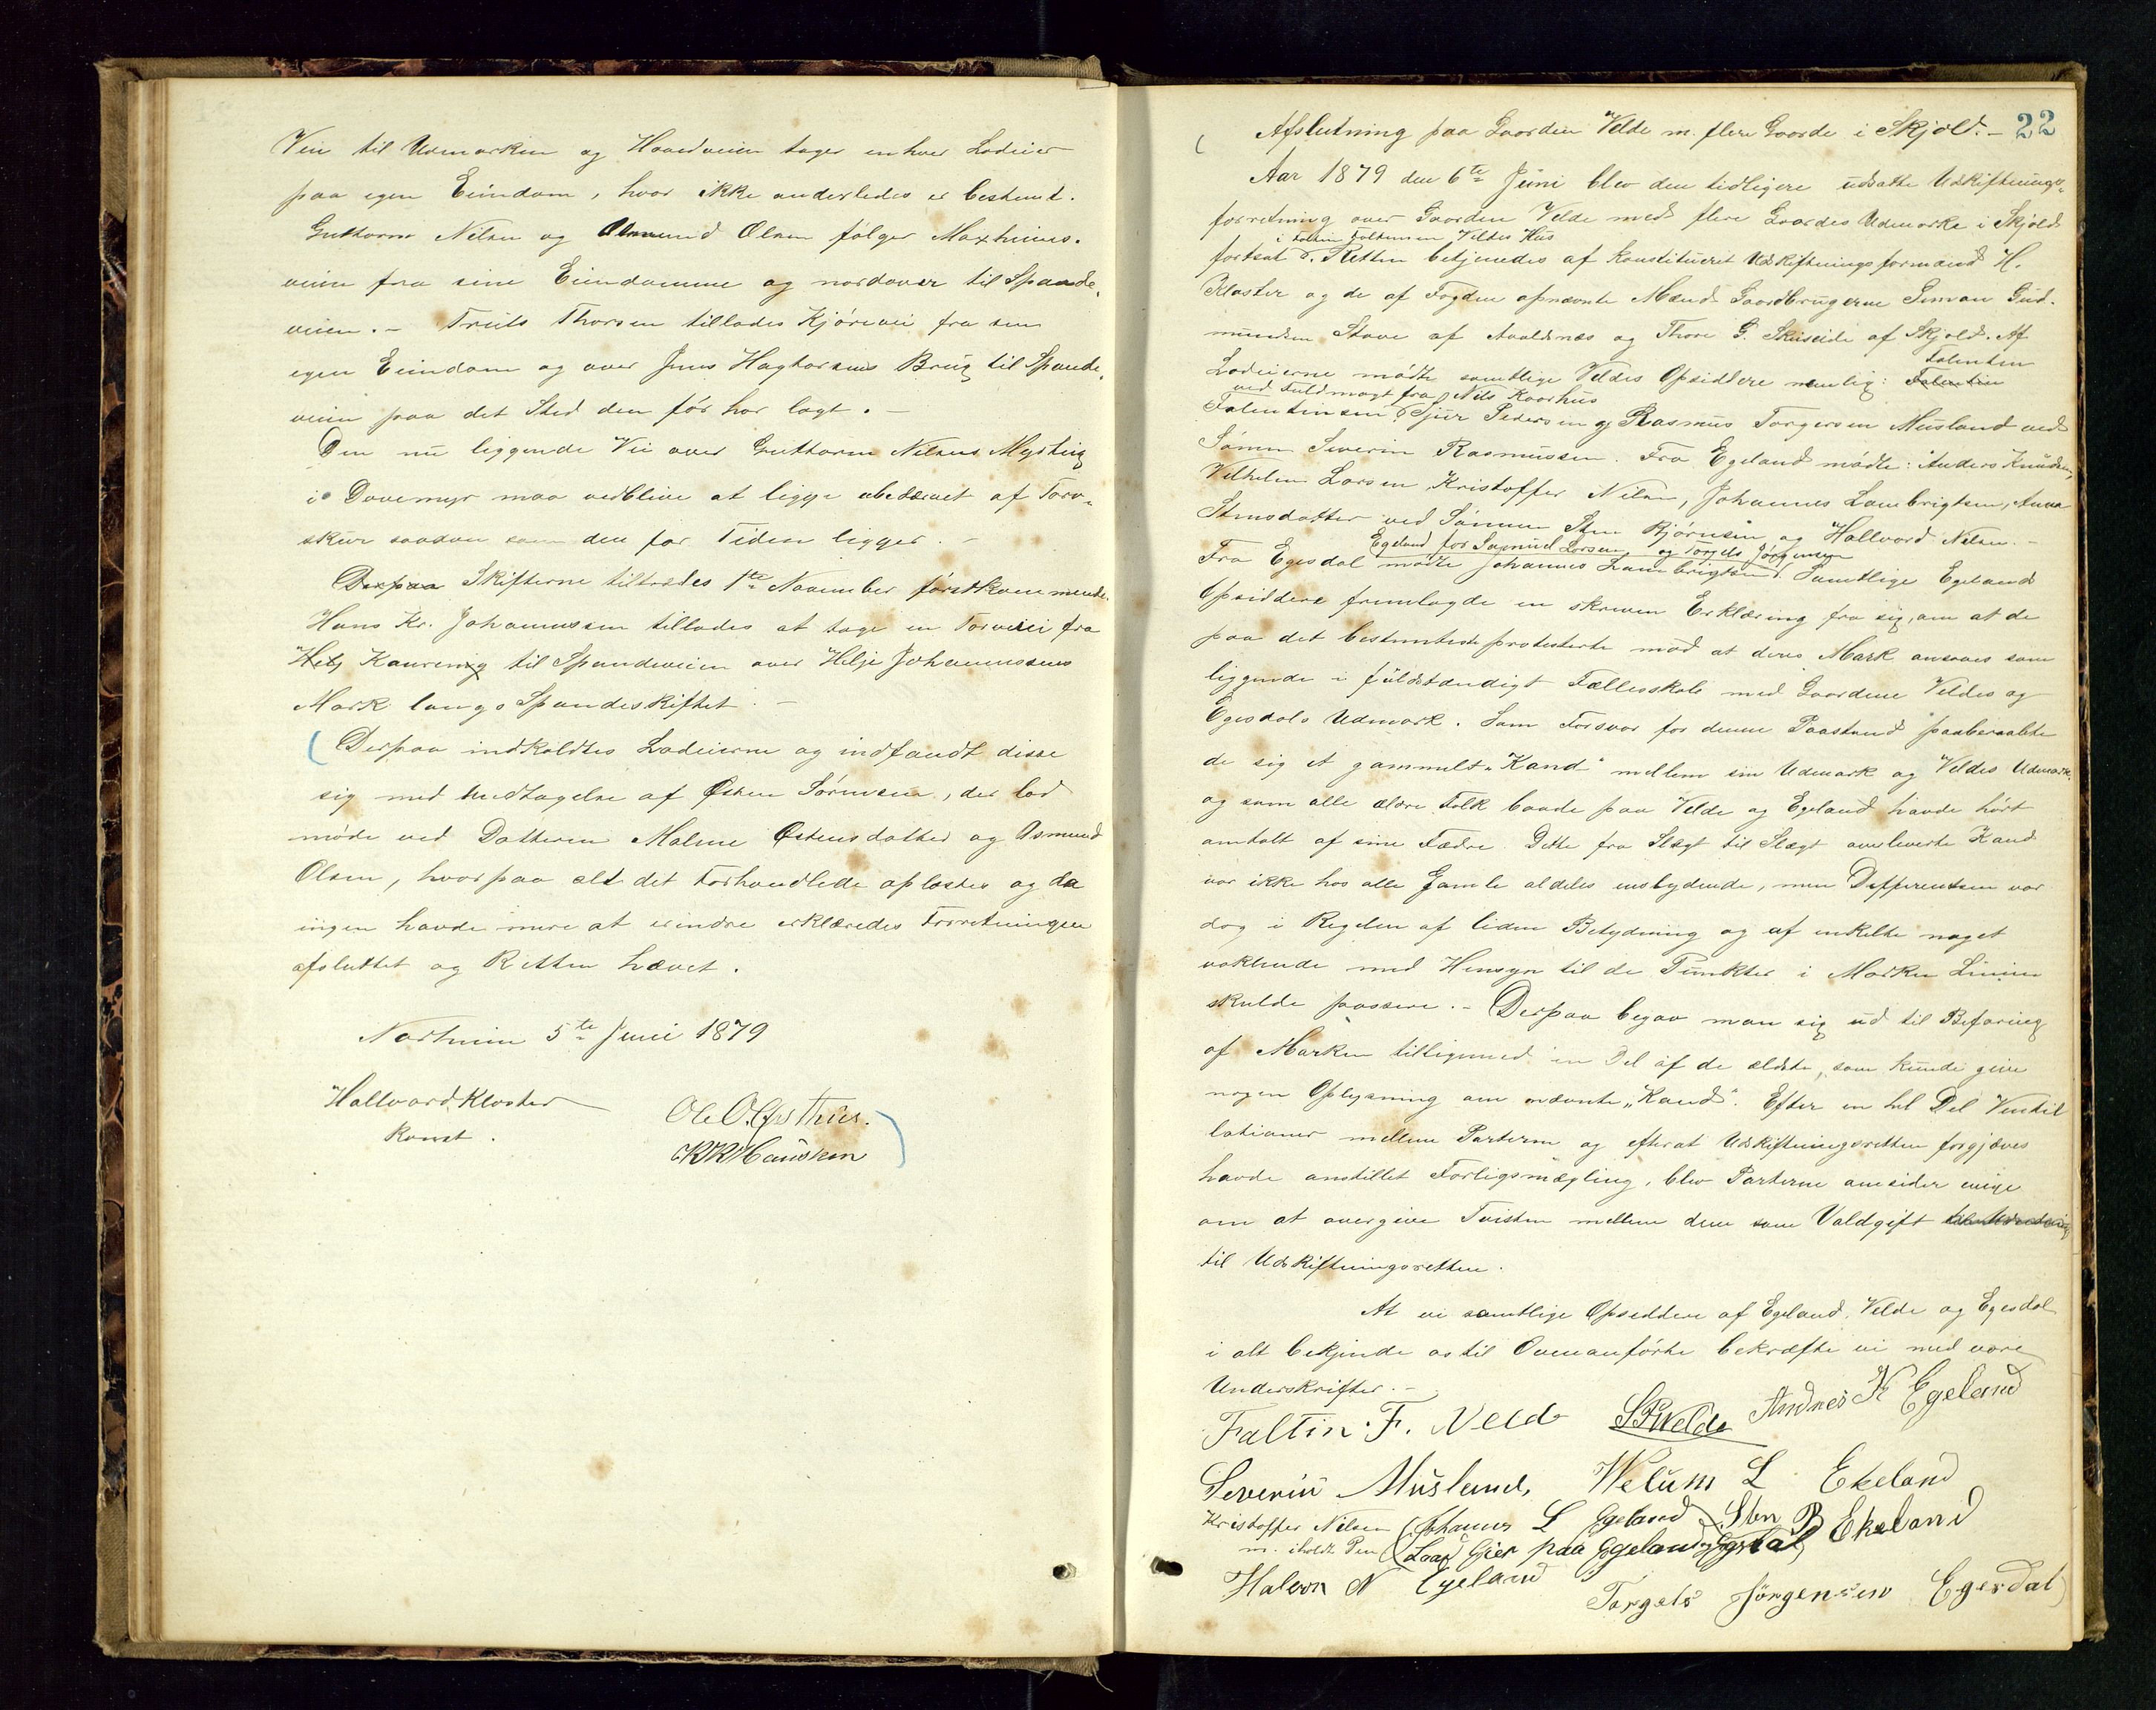 Vei til Udmarken og Hovedveien tager enhver Lodeier
paa egen Eiendom, hvor ikke anderledes er bestemt.
Guttorm Nilsen og Asmund Olsen følger Maxhuus-
veien fra sine Eiendomme og nordover til Spande-
veien. - Truls Thorsen tillades Kjørevei fra sin
egen Eiendom og over Jens Haghorsens Brug til Spande-
veien paa det Sted den før har lagt. -
Den nu liggende Vei over Guttorm Nilsens Myrteig
i Dovemyr maa vedblive at ligge ubeskaaret af Torv-
skur saadan som den for Tiden ligger. -
Derpaa Skifterne tiltrædes 1ste November førstkommende.
Hans Kr. Johannessen tillades at tage en Torvvei fra
Helj Kaurening til Spandeveien over Helje Johannessens
Mark langs Spandeskiftet. -
(Derpaa indkaldtes Lodeierne og indfandt disse
sig med Undtagelse af Østen Sørensen, der lod
møde ved Datteren Malene Østensdatter og Asmund
Olsen, hvorpaa alt det Forhandlede oplæstes og da
ingen havde mere at erindre erklæredes Forretningen
afsluttet og Retten hævet.
5te Juni 1879
Hallvard Kloster
Konst.
Ole O.
22
Afslutning paa Gaarden Velde m. flere Gaarde i Skjold. -
Aar 1879 den 6te Juni blev den tidligere udsatte Udskiftnings-
forretning over Gaarden Velde med flere Gaardes Udmarke i Skjold
i Faltin Faltinsen Veldes Hus
fortsat. Retten betjenedes af konstitueret Udskiftningsformand H.
Kloster og de af Fogden opnævnte Mænd Gaardbrugerne Simon Gud-
mundsen Stave af Avaldsnæs og Thore G. Skeiseide af Skjold. Af
Falentin
Lodeierne mødte samtlige Veldes Opsiddere nemlig: Falentin
ved Fuldmagt fra Nils Kaarhus
Falentinsen, Sjur Pedersen og Rasmus Torgersen Musland ved
Sønnen Severin Rasmussen. Fra Egeland mødte: Anders Knudsen,
Vilhelm Larsen, Kristoffer Nilsen, Johannes Lambrigtsen, Anna
Stensdatter ved Sønnen Sten Bjørnsen og Hallvard Nilsen. -
Egeland for Samuel Larsen og Torgels Jørgensen
Fra Egesdal mødte Johannes Lambrigtsen. Samtlige Egelands
Opsiddere fremlagde en skreven Erklæring fra sig, om at de
paa det bestemteste protesterte mod at deres Mark ansees som
liggende i fuldstændigt Fællesskab med Gaardene Veldes og
Egesdals Udmark. Som Forsvar for denne Paastand paaberaabte
de sig et gammelt „Kand" mellem sin Udmark og Veldes Udmark.
og som alle ældre Folk baade paa Velde og Egeland havde hørt
omtalt af sine Fædre. Dette fra Slægt til Slægt overleverte Kand
var ikke hos alle Gamle aldeles enslydende, men Differentsen var
dog i Regelen af liden Betydning og af enkelte noget
vaklende med Hensyn til de Punkter i Marken Linien
skulde passere. - Derpaa begav man sig ud til Befaring
af Marken tilligemed en Del af de ældste, som kunde give
nogen Oplysning om nævnte „Kand". Efter en hel Del Ventil
lationer mellem Parterne og efterat Udskiftningsretten forgjæves
havde anstillet Forligsmægling, blev Parterne omsider enige
om at overgive Tvisten mellem dem som Voldgift
til Udskiftningsretten.
At vi samtlige Opsiddere af Egeland, Velde og Egesdal
i alt bekjende os til Ovenanførte bekræfte vi med vore
Underskrifter. -
Faltin. F. Velde SPWelde Andres K Egeland
Severin Musland, Welum L Ekeland
Kristoffer Nilsen Johannes L Egeland Sten B Ekeland
m. iholdt Pen Laad Gier paa Egeland og Egesdal
Halvor N Egeland Torgels Jørgensen Egesdal